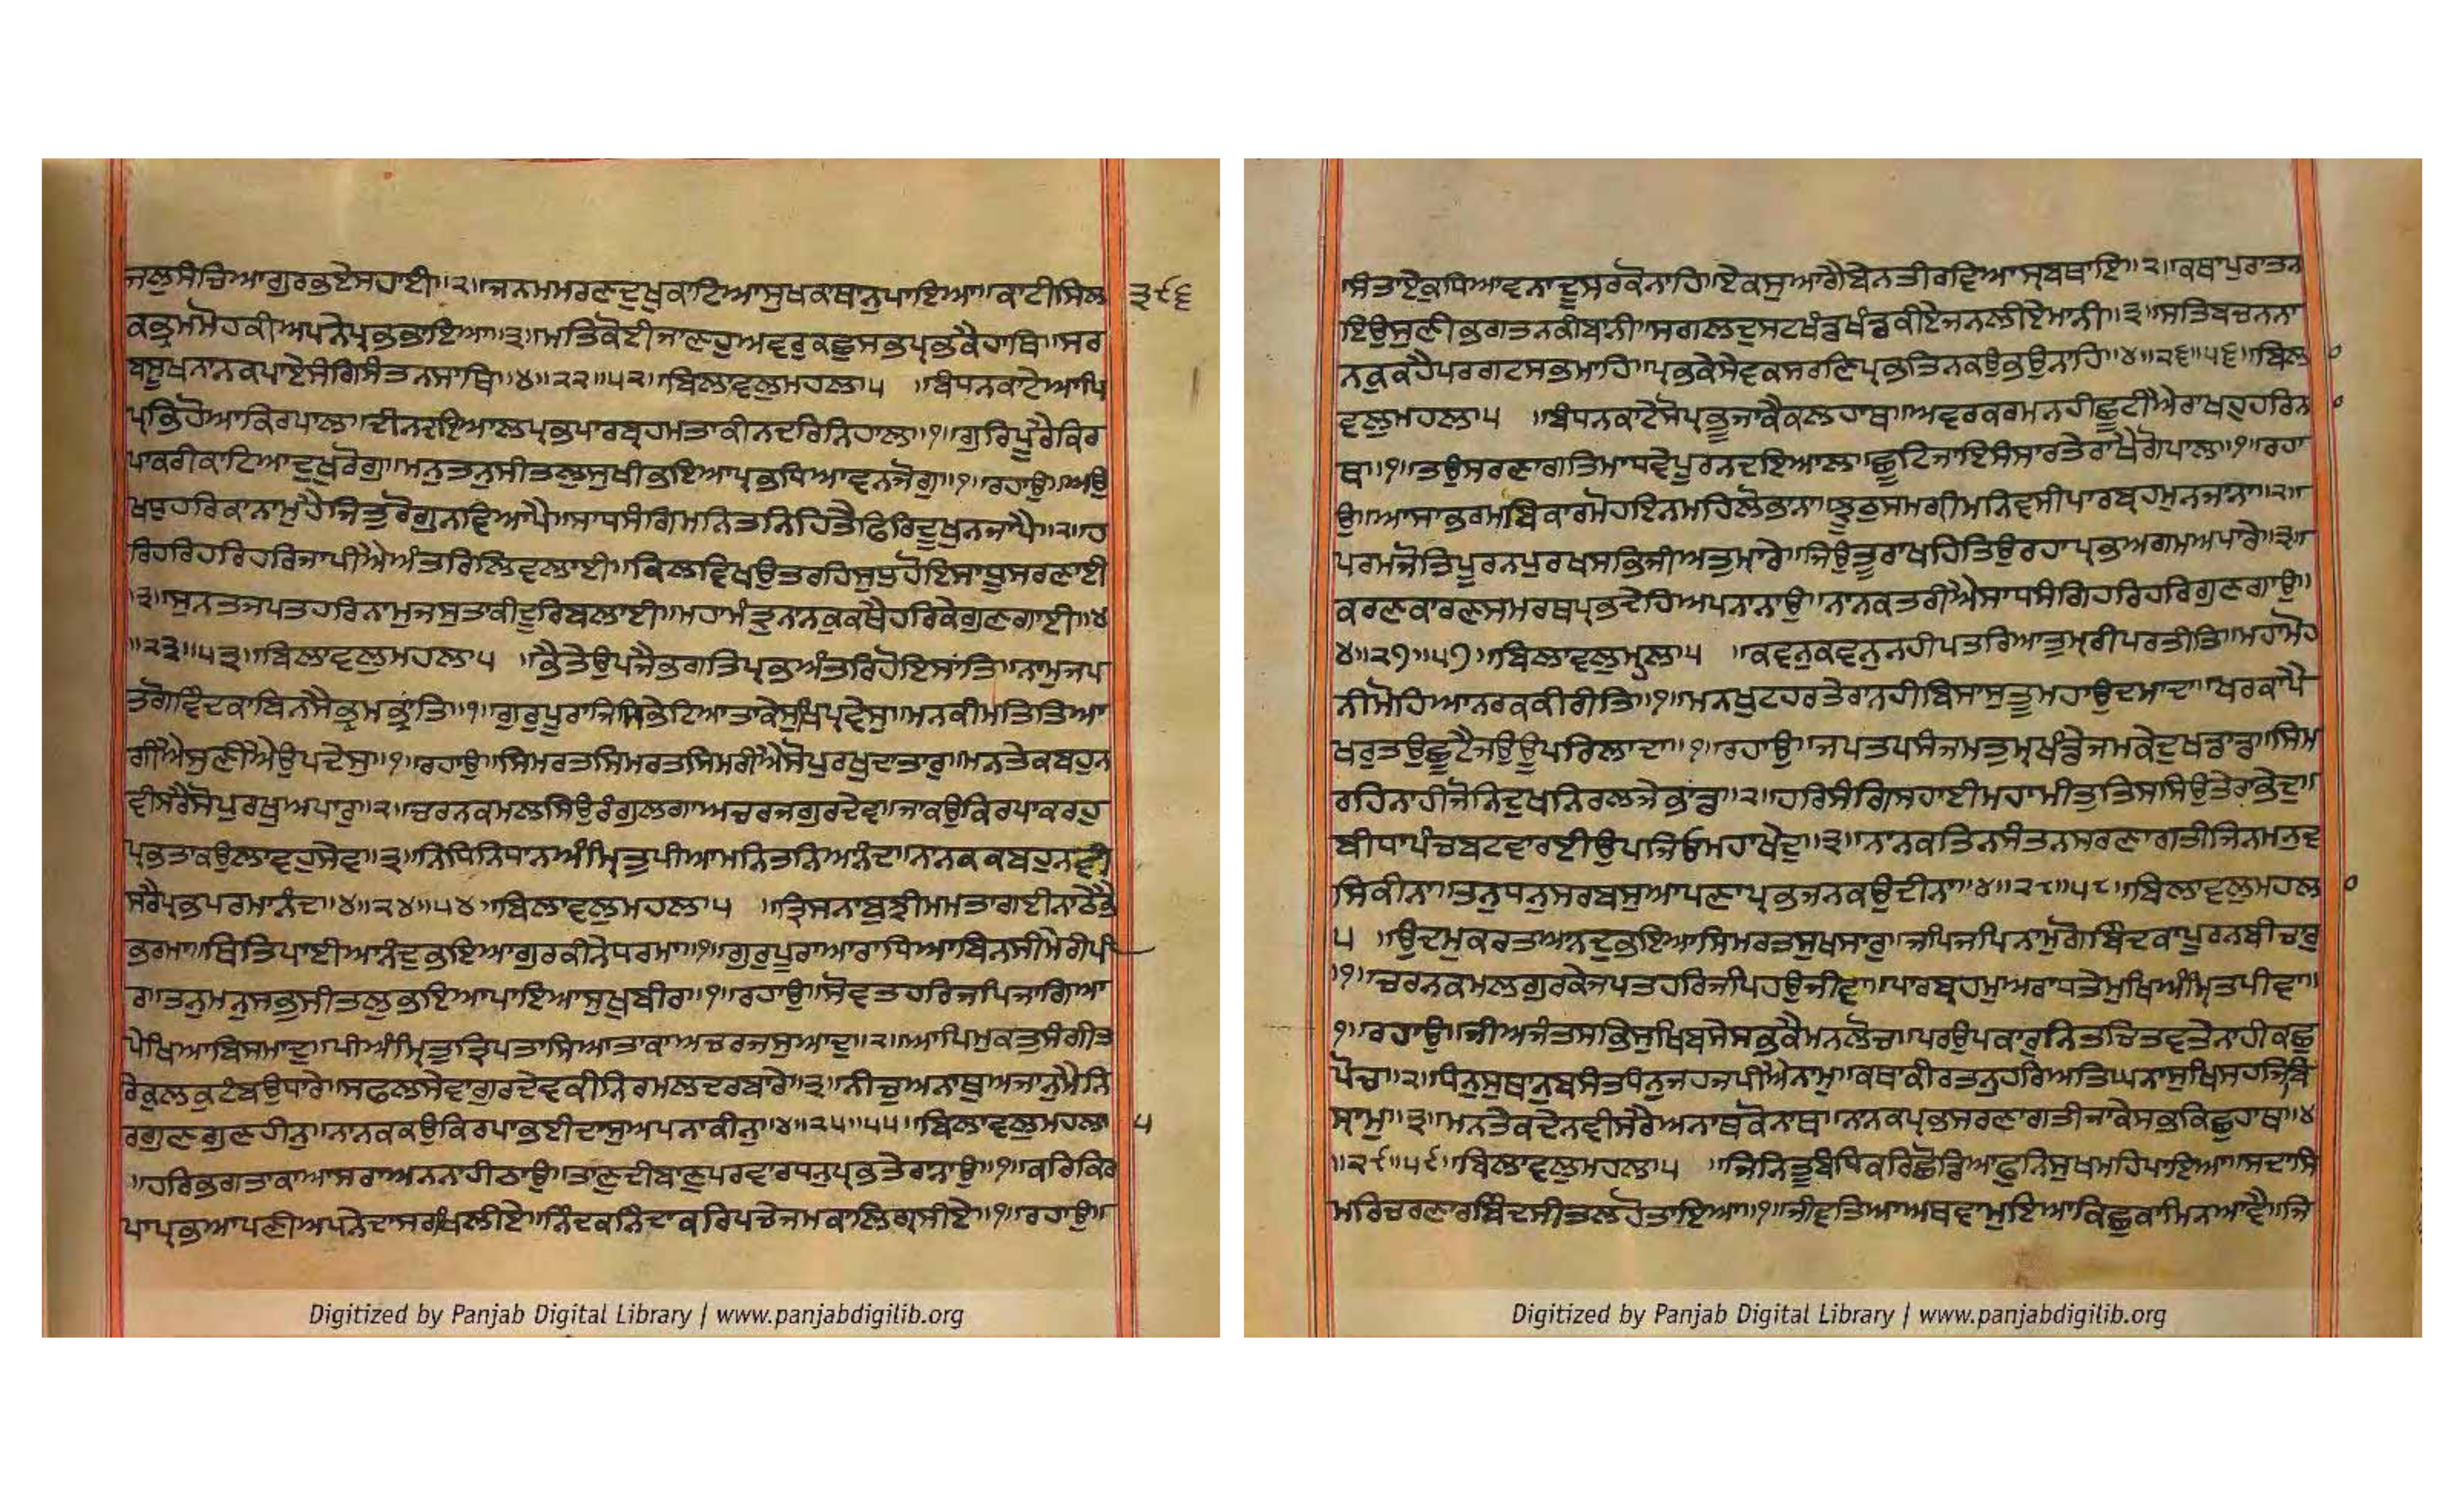 ਜਲੁਸੰਚਿਆਗੁਰਭਏਸਹਾਈ॥੨॥ਜਨਮਮਰਣਦੁਖੁਕਾਟਿਆਸੁਖਕਾਥਾਨੁਪਾਇਆ॥ਕਾਟੀਸਿਲ
੩੯੬
ਕਭ੍ਰਮਮੋਹਕੀਅਪਨੇਪ੍ਰਭਭਾਇਆ॥੩॥ਮਤਿਕੋਈਜਾਣਹੁਅਵਰੁਕਛੁਸਭਪ੍ਰਭਕੈਹਾਥਿ॥ਸਰ
ਬਸੂਖਨਾਨਕਪਾਏਸੰਗਿਸੰਤਨਸਾਥਿ॥੪॥੨੨॥੫੨॥ਬਿਲਾਵਲੁਮਹਲਾ੫ ॥ਬੰਧਨਕਾਟੇਆਪਿ
ਪ੍ਰਭਿਹੋਆਕਿਰਪਾਲ॥ਦੀਨਦਇਆਲਪ੍ਰਭਪਾਰਬ੍ਰਹਮਤਾਕੀਨਦਰਿਨਿਹਾਲ॥੧॥ਗੁਰਿਪੂਰੈਕਿਰ
ਪਾਕਰੀਕਾਟਿਆਦੁਖੁਰੋਗੁ॥ਮਨੁਤਨੁਸੀਤਲੁਸੁਖੀਭਇਆਪ੍ਰਭਧਿਆਵਨਜੋਗੁ॥੧॥ਰਹਾਉ॥ਅਉ
ਖਧੁਹਰਿਕਾਨਾਮੁਹੈਜਿਤੁਰੋਗੁਨਵਿਆਪੈ॥ਸਾਧਸੰਗਿਮਨਿਤਨਿਹਿਤੈਫਿਰਿਦੂਖੁਨਜਾਪੈ॥੨॥ਹ
ਰਿਹਰਿਹਰਿਹਰਿਜਾਪੀਐਅੰਤਰਿਲਿਵਲਾਈ॥ਕਿਲਵਿਖਉਤਰਹਿਸੁਧੁਹੋਇਸਾਧੂਸਰਣਾਈ
॥੩॥ਸੁਨਤਜਪਤਹਰਿਨਾਮੁਜਸੁਤਾਕੀਦੂਰਿਬਲਾਈ॥ਮਹਾਮੰਤ੍ਰੁਨਾਨਕੁਕਥੈਹਰਿਕੇਗੁਣਗਾਈ॥੪
॥੨੩॥੫੩॥ਬਿਲਾਵਲੁਮਹਲਾ੫ ॥ਭੈਤੇਉਪਜੈਭਗਤਿਪ੍ਰਭਅੰਤਰਿਹੋਇਸਾਂਤਿ॥ਨਾਮੁਜਪ
ਤਗੋਵਿੰਦਕਾਬਿਨਸੈਭ੍ਰਮਭ੍ਰਾਂਤਿ॥੧॥ਗੁਰੁਪੂਰਾਜਿਸੁਭੇਟਿਆਤਾਕੈਸੁਖਿਪ੍ਰਵੇਸੁ॥ਮਨਕੀਮਤਿਤਿਆ
ਗੀਐਸੁਣੀਐਉਪਦੇਸੁ॥੧॥ਰਹਾਉ॥ਸਿਮਰਤਸਿਮਰਤਸਿਮਰੀਐਸੋਪੁਰਖੁਦਾਤਾਰੁ॥ਮਨਤੇਕਬਹੁਨ
ਵੀਸਰੈਸੋਪੁਰਖੁਅਪਾਰੁ॥੨॥ਚਰਨਕਮਲਸਿਉਰੰਗੁਲਗਾਅਚਰਜਗੁਰਦੇਵ॥ਜਾਕਉਕਿਰਪਾਕਰਹੁ
ਪ੍ਰਭਤਾਕਉਲਾਵਹੁਸੇਵ॥੩॥ਨਿਧਿਨਿਧਾਨਅੰਮ੍ਰਿਤੁਪੀਆਮਨਿਤਨਿਆਨੰਦ॥ਨਾਨਕਕਬਹੁਨਵੀ
ਸਰੈਪ੍ਰਭਪਰਮਾਨੰਦ॥੪॥੨੪॥੫੪॥ਬਿਲਾਵਲੁਮਹਲਾ੫ ॥ਤ੍ਰਿਸਨਾਬੁਝੀਮਮਤਾਗਈਨਾਠੇਭੈ
ਭਰਮਾ॥ਥਿਤਿਪਾਈਆਨੰਦੁਭਇਆਗੁਰਕੀਨੇਧਰਮਾ॥੧॥ਗੁਰੁਪੂਰਾਆਰਾਧਿਆਬਿਨਸੀਮੇਰੀਪੀ
ਰ॥ਤਨੁਮਨੁਸਭੁਸੀਤਲੁਭਇਆਪਾਇਆਸੁਖੁਬੀਰ॥੧॥ਰਹਾਉ॥ਸੋਵਤਹਰਿਜਪਿਜਾਗਿਆ
ਪੇਖਿਆਬਿਸਮਾਦੁ॥ਪੀਅੰਮ੍ਰਿਤੁਤ੍ਰਿਪਤਾਸਿਆਤਾਕਾਅਚਰਜਸੁਆਦੁ॥੨॥ਆਪਿਮੁਕਤੁਸੰਗੀਤ
ਰੇਕੁਲਕੁਟੰਬਉਧਾਰੇ॥ਸਫਲਸੇਵਾਗੁਰਦੇਵਕੀਨਿਰਮਲਦਰਬਾਰੇ॥੩॥ਨੀਚੁਅਨਾਥੁਅਜਾਨੁਮੈਨਿ
ਰਗੁਣਗੁਣਹੀਨੁ॥ਨਾਨਕਕਉਕਿਰਪਾਭਈਦਾਸੁਅਪਨਾਕੀਨੁ॥੪॥੨੫॥੫੫॥ਬਿਲਾਵਲੁਮਹਲਾ ੫
॥ਹਰਿਭਗਤਾਕਾਆਸਰਾਅਨਨਾਹੀਠਾਉ॥ਤਾਣੁਦੀਬਾਣੁਪਰਵਾਰਧਨੁਪ੍ਰਭਤੇਰਾਨਾਉ॥੧॥ਕਰਿਕਿਰ
ਪਾਪ੍ਰਭਆਪਣੀਅਪਨੇਦਾਸਰਖਿਲੀਏ॥ਨਿੰਦਕਨਿੰਦਾਕਰਿਪਚੇਜਮਕਾਲਿਗ੍ਰਸੀਏ॥੧॥ਰਹਾਉ॥
Digitized by Panjab Digital Library | www.panjabdigilib.org
ਸੰਤਾਏਕੁਧਿਆਵਨਾਦੂਸਰਕੋਨਾਹਿ॥ਏਕਸੁਆਗੈਬੇਨਤੀਰਵਿਆਸ੍ਰਬਥਾਇ॥੨॥ਕਥਾਪੁਰਾਤਨ
ਇਉਸੁਣੀਭਗਤਨਕੀਬਾਨੀ॥ਸਗਲਦੁਸਟਖੰਡਖੰਡਕੀਏਜਨਲੀਏਮਾਨੀ॥੩॥ਸਤਿਬਚਨਨਾ
ਨਕੁਕਹੈਪਰਗਟਸਭਮਾਹਿ॥ਪ੍ਰਭਕੇਸੇਵਕਸਰਣਿਪ੍ਰਭਤਿਨਕਉਭਉਨਾਹਿ॥੪॥੨੬॥੫੬॥ਬਿਲਾ
ਵਲੁਮਹਲਾ੫ ॥ਬੰਧਨਕਾਟੈਸੋਪ੍ਰਭੂਜਾਕੈਕਲਹਾਥ॥ਅਵਰਕਰਮਨਹੀਛੂਟੀਐਰਾਖਹੁਹਰਿਨ
ਥ॥੧॥ਤਉਸਰਣਾਗਤਿਮਾਧਵੇਪੂਰਨਦਇਆਲ॥ਛੂਟਿਜਾਇਸੰਸਾਰਤੇਰਾਖੈਗੋਪਾਲ॥੧॥ਰਹਾ
ਉ॥ਆਸਾਭਰਮਬਿਕਾਰਮੋਹਇਨਮਹਿਲੋਭਾਨਾ॥ਝੂਠੁਸਮਗ੍ਰੀਮਨਿਵਸੀਪਾਰਬ੍ਰਹਮੁਨਜਾਨਾ॥੨॥
ਪਰਮਜੋਤਿਪੂਰਨਪੁਰਖਸਭਿਜੀਅਤੁਮਾਰੇ॥ਜਿਉਤੂਰਾਖਹਿਤਿਉਰਹਾਪ੍ਰਭਅਗਮਅਪਾਰੇ॥੩॥
ਕਰਣਕਾਰਣਸਮਰਥਪ੍ਰਭਦੇਹਿਅਪਨਾਨਾਉ॥ਨਾਨਕਤਰੀਐਸਾਧਸੰਗਿਹਰਿਹਰਿਗੁਣਗਾਉ॥
੪॥੨੭॥੫੭॥ਬਿਲਾਵਲੁਮ੍ਹਲਾ੫ ॥ਕਵਨੁਕਵਨੁਨਹੀਪਤਰਿਆਤੁਮ੍ਹਰੀਪਰਤੀਤਿ॥ਮਹਾਮੋਹ
ਨੀਮੋਹਿਆਨਰਕਕੀਰੀਤਿ॥੧॥ਮਨਖੁਟਹਰਤੇਰਾਨਹੀਬਿਸਾਸੁਤੂਮਹਾਉਦਮਾਦਾ॥ਖਰਕਾਪੈ
ਖਰੁਤਉਛੁਟੈਜਉਊਪਰਿਲਾਦਾ॥੧॥ਰਹਾਉ॥ਜਪਤਪਸੰਜਮਤੁਮ੍ਹਖੰਡੇਜਮਕੇਦੁਖਡਾਂਡ॥ਸਿਮ
ਰਹਿਨਾਹੀਜੋਨਿਦੁਖਨਿਰਲਜੇਭਾਂਡ॥੨॥ਹਰਿਸੰਗਿਸਹਾਈਮਹਾਮੀਤੁਤਿਸਸਿਉਤੇਰਾਭੇਦੁ॥
ਬੀਧਾਪੰਚਬਟਵਾਰਈਉਪਜਿਓਮਹਾਖੇਦੁ॥੩॥ਨਾਨਕਤਿਨਸੰਤਨਸਰਣਾਗਤੀਜਿਨਮਨੁਵ
ਸਿਕੀਨਾ॥ਤਨੁਧਨੁਸਰਬਸੁਆਪਣਾਪ੍ਰਭਜਨਕਉਦੀਨਾ॥੪॥੨੮॥੫੮॥ਬਿਲਾਵਲੁਮਹਲਾ
੫ ॥ਉਦਮੁਕਰਤਆਨਦੁਭਇਆਸਿਮਰਤਸੁਖਸਾਰੁ॥ਜਪਿਜਪਿਨਾਮੁਗੋਬਿੰਦਕਾਪੂਰਨਬੀਚਾਰੁ
॥੧॥ਚਰਨਕਮਲਗੁਰਕੇਜਪਤਹਰਿਜਪਿਹਉਜੀਵਾ॥ਪਾਰਬ੍ਰਹਮੁਅਰਾਧਤੇਮੁਖਿਅੰਮ੍ਰਿਤਪੀਵਾ॥
੧॥ਰਹਾਉ॥ਜੀਅਜੰਤਸਭਿਸੁਖਿਬਸੇਸਭਕੈਮਨਲੋਚ॥ਪਰਉਪਕਾਰੁਨਿਤਚਿਤਵਤੇਨਾਹੀਕਛੁ
ਪੋਚ॥੨॥ਧੰਨੁਸੁਥਾਨੁਬਸੰਤਧੰਨੁਜਹਜਪੀਐਨਾਮੁ॥ਕਥਾਕੀਰਤਨੁਹਰਿਅਤਿਘਨਾਸੁਖਸਹਜਬਿ
ਸ੍ਰਾਮੁ॥੩॥ਮਨਤੇਕਦੇਨਵੀਸਰੈਅਨਾਥਕੋਨਾਥ॥ਨਾਨਕਪ੍ਰਭਸਰਣਾਗਤੀਜਾਕੇਸਭੁਕਿਛੁਹਾਥ॥੪
॥੨੯॥੫੯॥ਬਿਲਾਵਲੁਮਹਲਾ੫ ॥ਜਿਨਿਤੂਬੰਧਿਕਰਿਛੋਡਿਆਫੁਨਿਸੁਖਮਹਿਪਾਇਆ॥ਸਦਾਸਿ
ਮਰਿਚਰਣਾਰਬਿੰਦਸੀਤਲਹੋਤਾਇਆ॥੧॥ਜੀਵਤਿਆਅਥਵਾਮੁਇਆਕਿਛੁਕਾਮਿਨਆਵੈ॥ਜਿ
Digitized by Panjab Digital Library | www.panjabdigilib.org